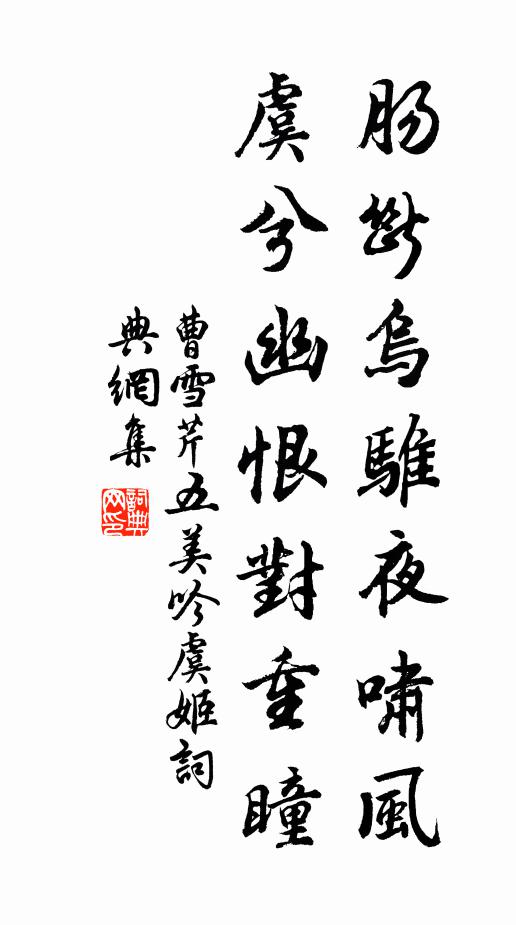 肠斷烏騅夜嘯風
虞兮幽恨對重瞳
曹雪芹五美吟虞姬詞
典網集
詞典网印